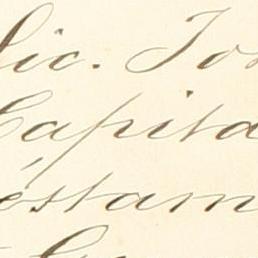 lic. Jo
Capita
éstam